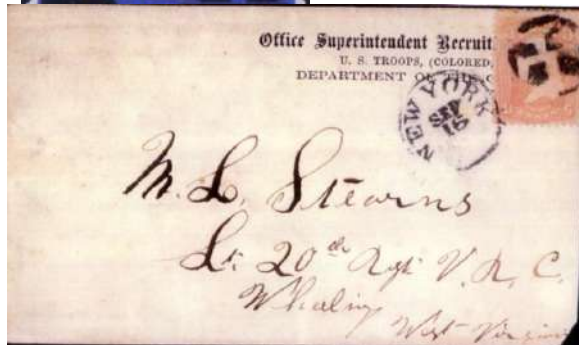 Office Superintendent Recruit
U. S. TROOPS, (COLORED,
DEPARTMENT O
NEW YORK
SEP
15
M. L. Stearns
Lt. 20th Rgt V. R. C.
Wheeling
West Virginia